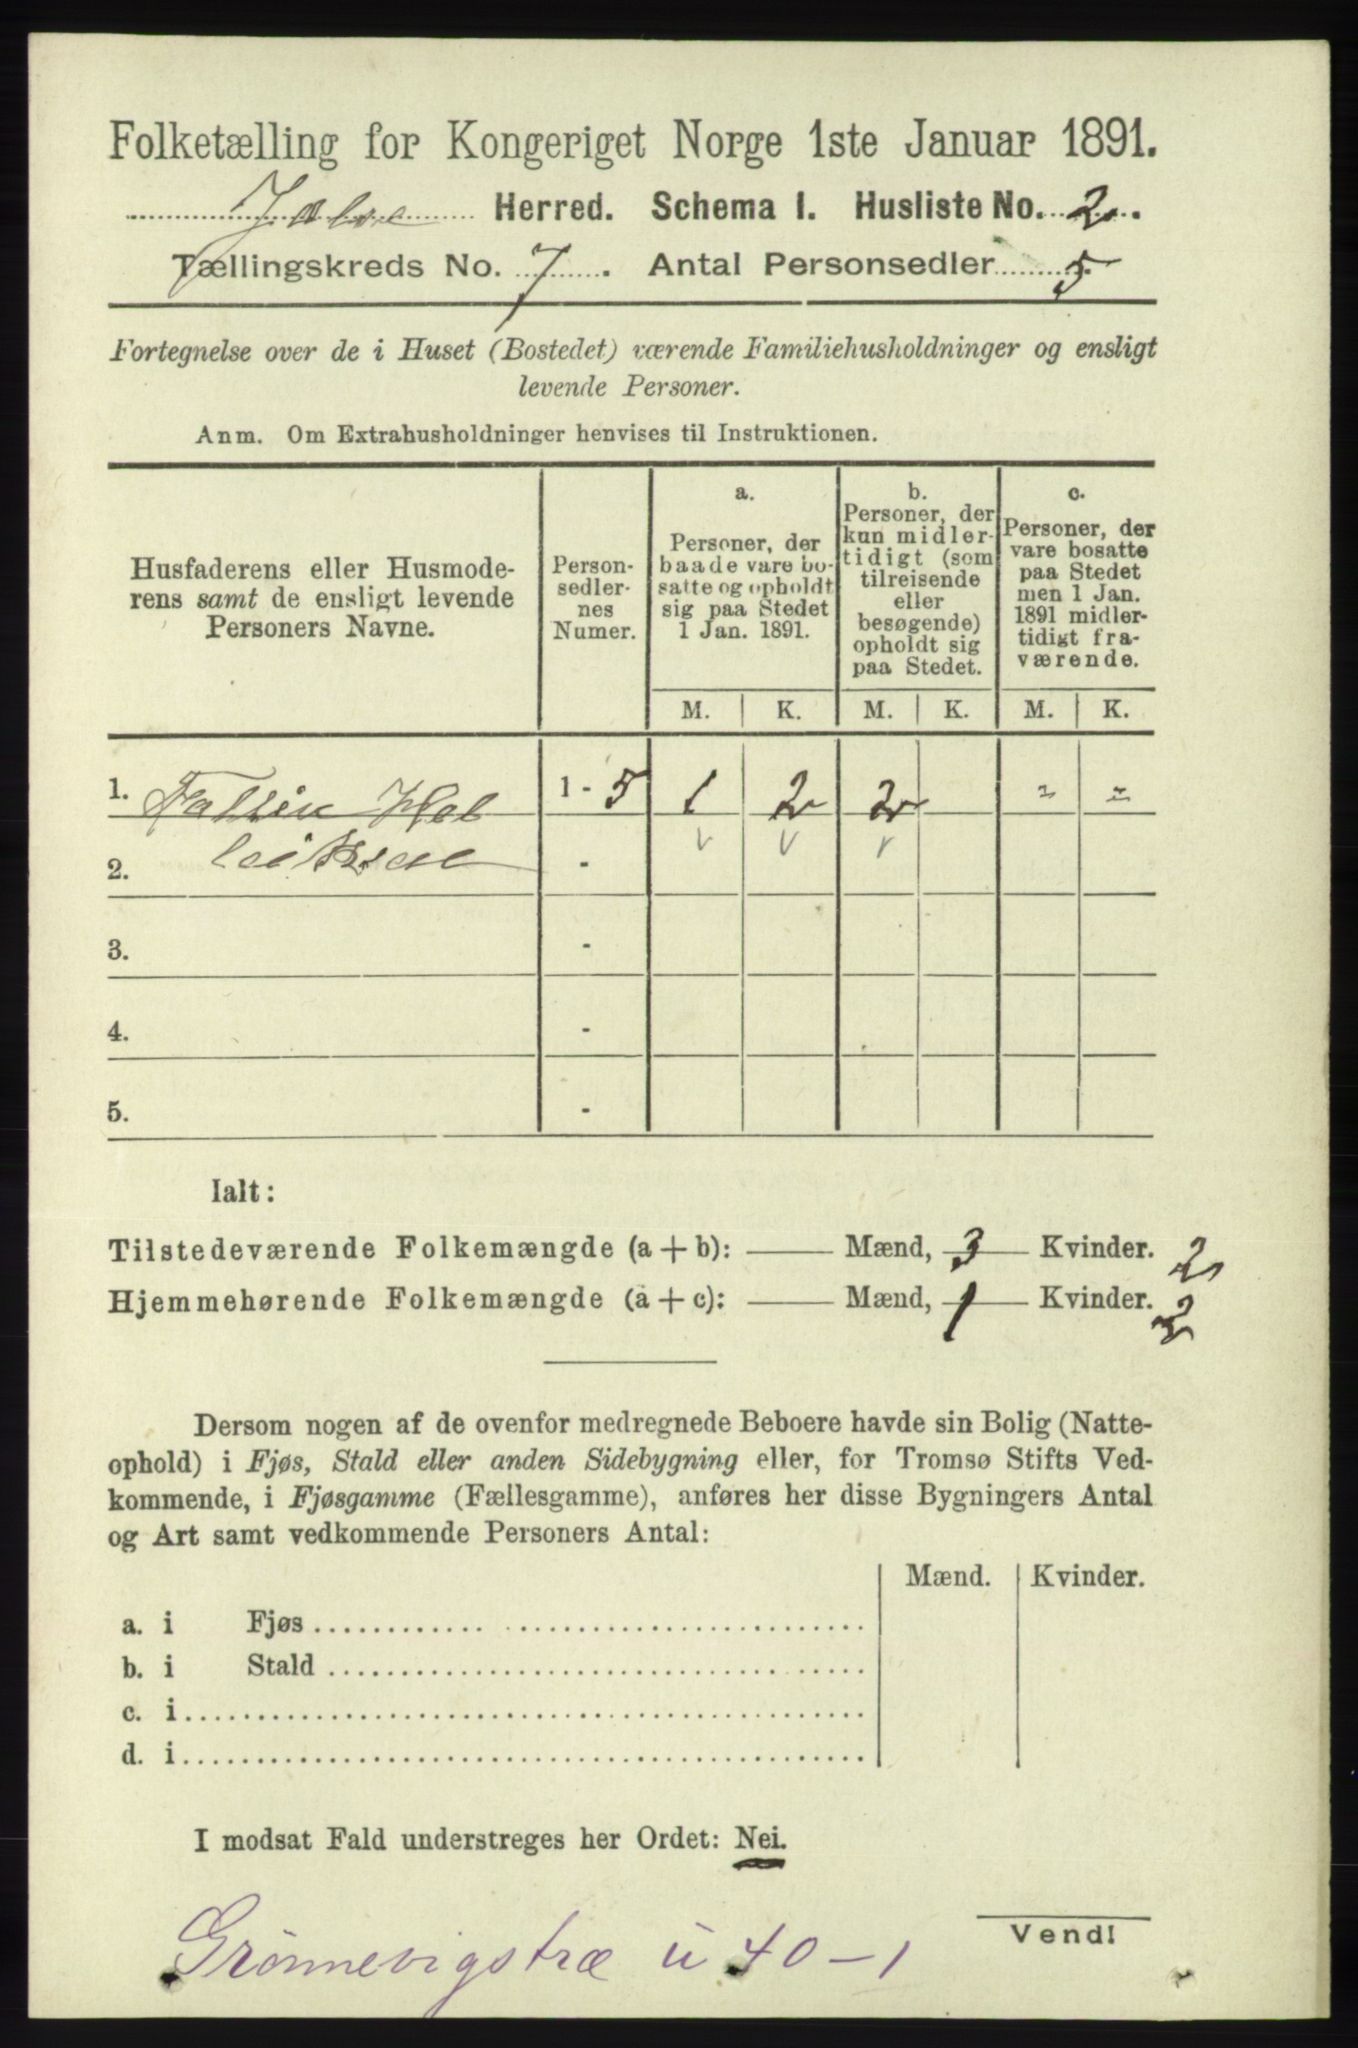 Folketælling for Kongeriget Norge 1ste Januar 1891.
Herred. Schema I. Husliste No. 2.
Tællingskreds No. 7. Antal Personsedler 5
Fortegnelse over de i Huset (Bostedet) værende Familiehusholdninger og ensligt
levende Personer.
Anm. Om Extrahusholdninger henvises til Instruktionen.
Husfaderens eller Husmode-
rens samt de ensligt levende
Personers Navne.
Person-
sedler-
nes
Numer.
a.
Personer, der
baade vare bo-
satte og opholdt
sig paa Stedet
1 Jan. 1891.
b.
Personer, der
kun midler-
tidigt (som
tilreisende
eller
besøgende)
opholdt sig
paa Stedet.
c.
Personer, der
vare bosatte
paa Stedet
men 1 Jan.
1891 midler-
tidigt fra-
værende.
M. K. M. K. M. K.
1. 1 - 5 1 2 2 - -
2. -
3. -
4. -
5. -
Ialt:
Tilstedeværende Folkemængde (a + b): Mænd, 3 Kvinder. 2
Hjemmehørende Folkemængde (a + c): Mænd, 1 Kvinder. 2
Dersom nogen af de ovenfor medregnede Beboere havde sin Bolig (Natte-
ophold) i Fjøs, Stald eller anden Sidebygning eller, for Tromsø Stifts Ved-
kommende, i Fjøsgamme (Fællesgamme), anføres her disse Bygningers Antal
og Art samt vedkommende Personers Antal:
Mænd. Kvinder.
a. i Fjøs
b. i Stald
c. i
d. i
I modsat Fald understreges her Ordet: Nei.
Vend!
Grönnevigstræ u 40 - 1